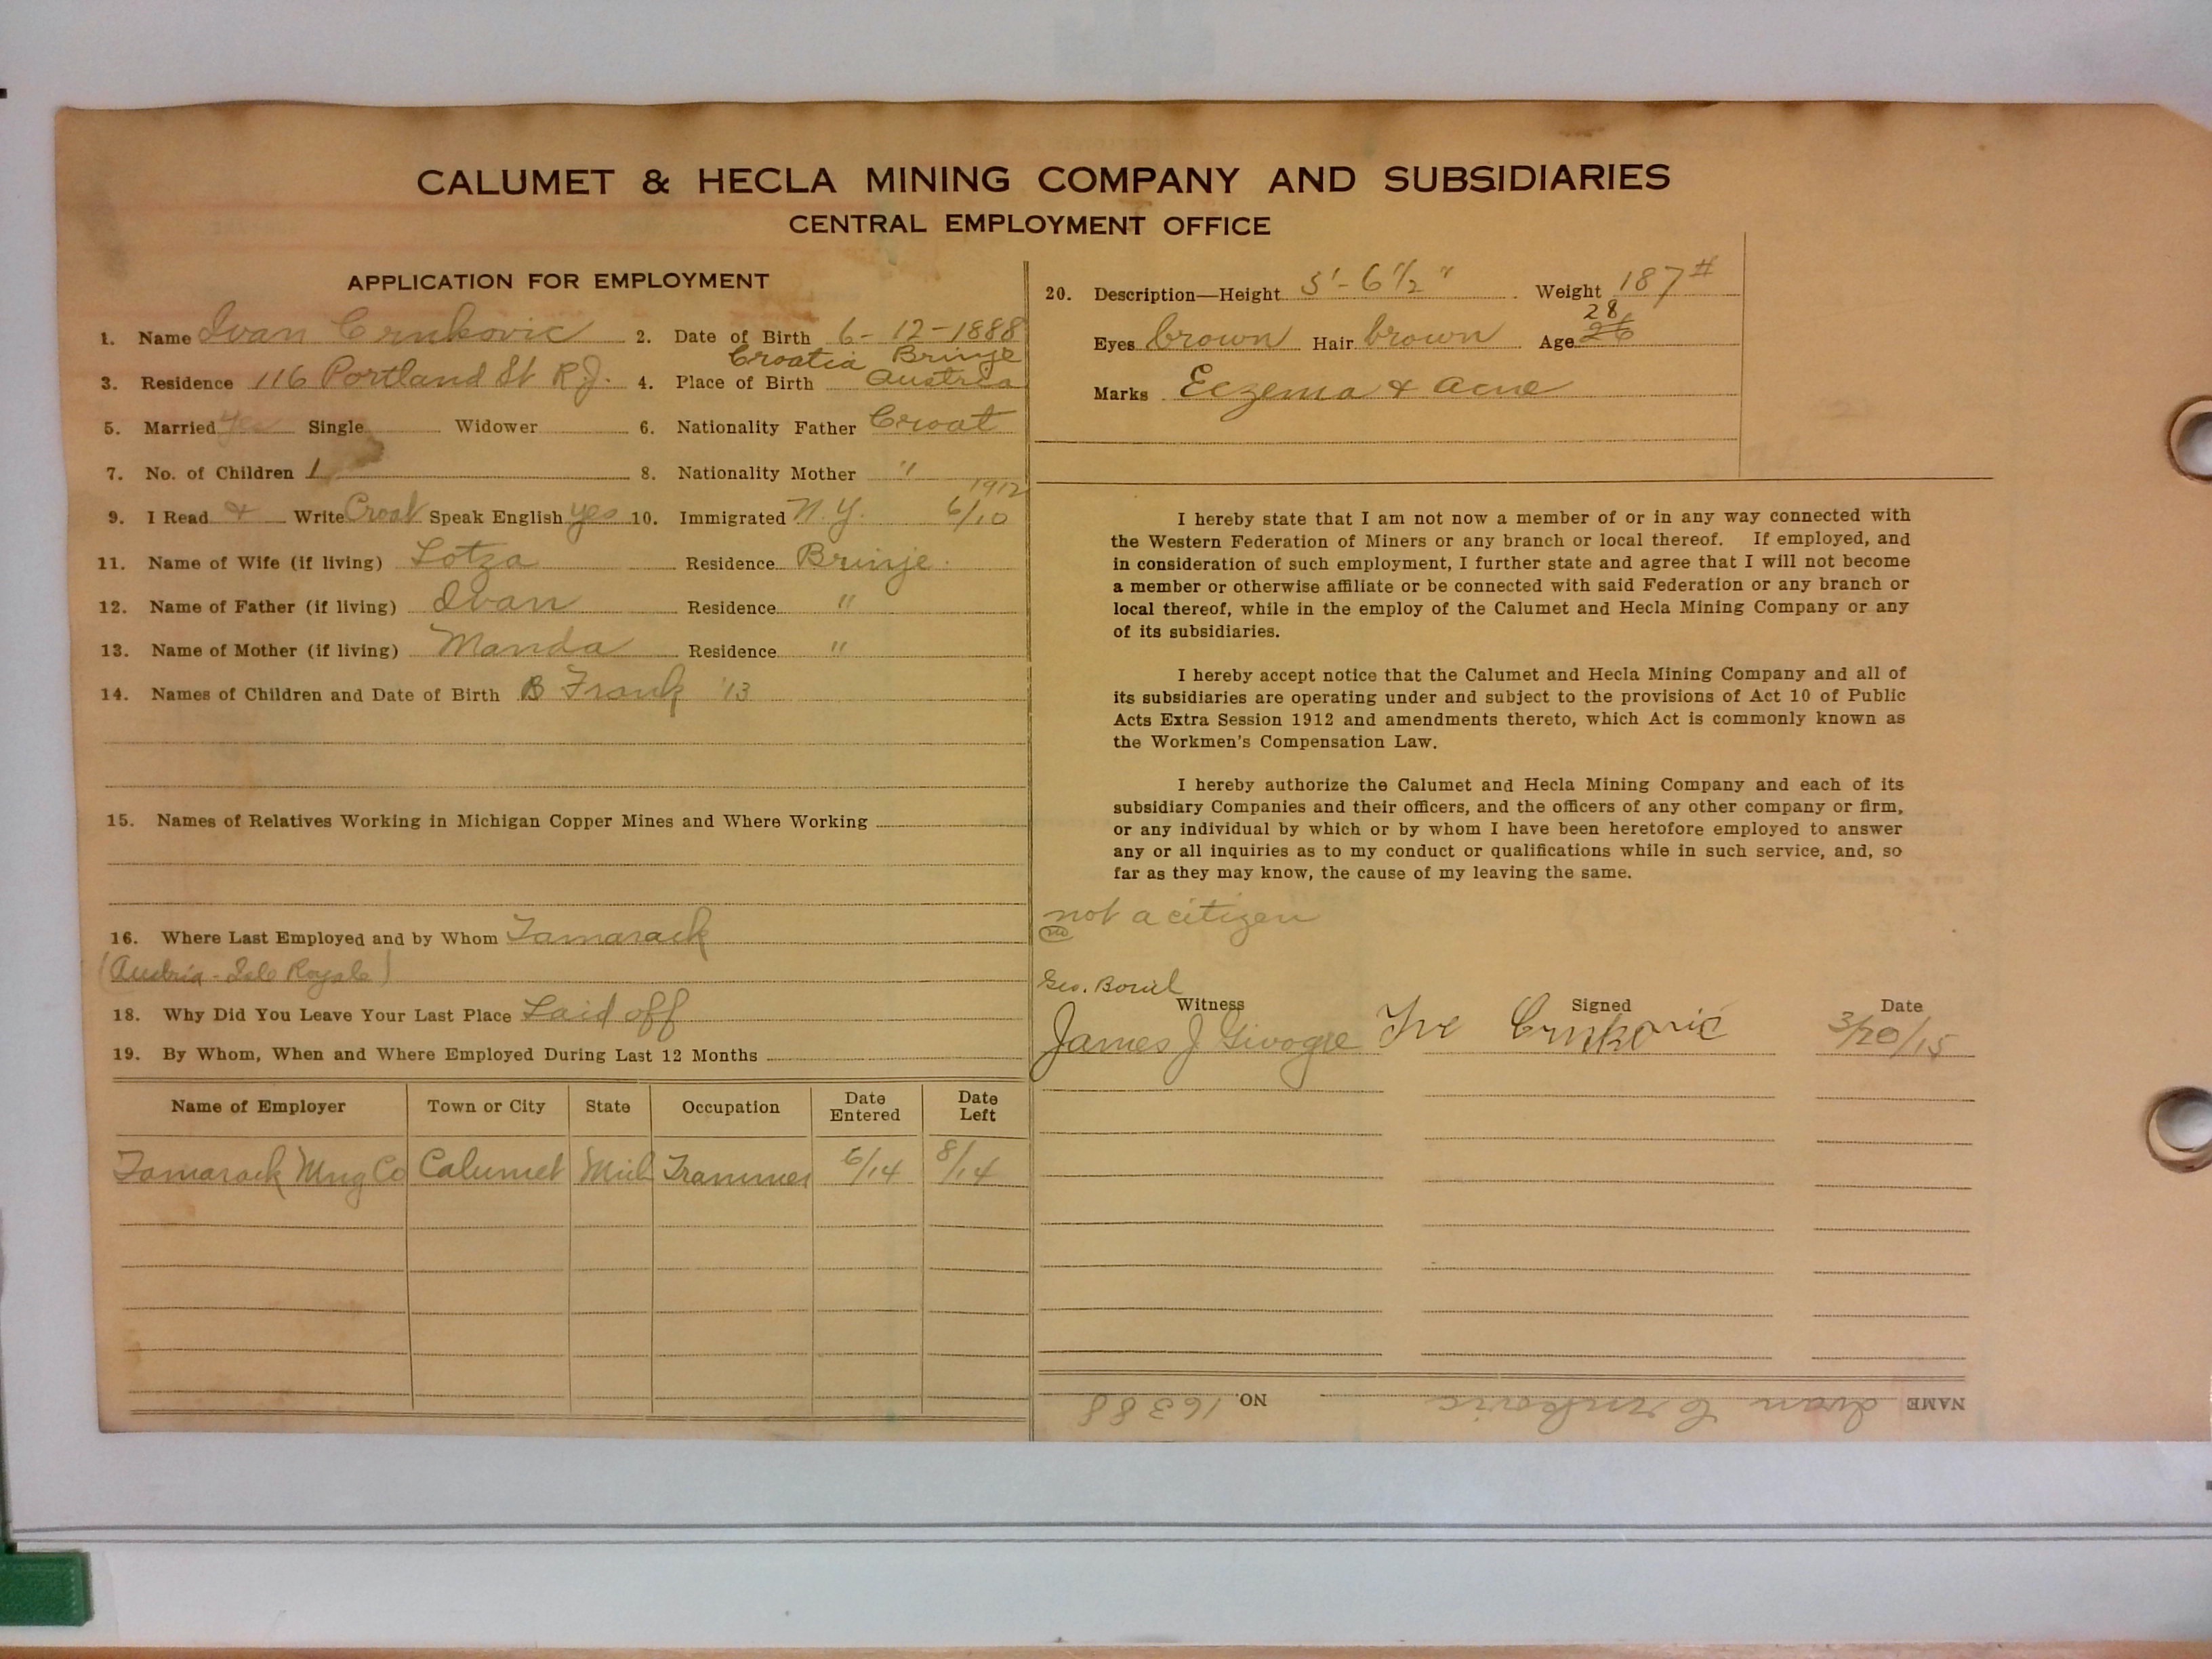 CALUMET & HECLA MINING COMPANY AND SUBSIDIARIES
CENTRAL EMPLOYMENT OFFICE
APPLICATION FOR EMPLOYMENT
1. Name Ivan Crnkovic 2. Date of Birth 6-12-1888
Croatia Brinje
3. Residence 116 Portland St R.J. 4. Place of Birth Austria
5. Married Yes Single Widower 6. Nationality Father Croat
7. No. of Children 1 8. Nationality Mother "
1912
9. I Read & Write Croat Speak English yes 10. Immigrated N.Y. 6/10
11. Name of Wife (if living) Lotza Residence Brinje.
12. Name of Father (if living) Ivan Residence "
13. Name of Mother (if living) Manda Residence "
14. Names of Children and Date of Birth B Frank '13
15. Names of Relatives Working in Michigan Copper Mines and Where Working
16. Where Last Employed and by Whom Tamarack
(Austria - Isle Royale)
18. Why Did You Leave Your Last Place Laid off
19. By Whom, When and Where Employed During Last 12 Months
Name of Employer Town or City State Occupation Date Entered Date Left
Tamarack Mng Co Calumet Mich Trammer 6/14 8/14
20. Description—Height 5'-6 1/2" Weight 187#
28
Eyes brown Hair brown Age 26
Marks Eczema & acne
I hereby state that I am not now a member of or in any way connected with
the Western Federation of Miners or any branch or local thereof. If employed, and
in consideration of such employment, I further state and agree that I will not become
a member or otherwise affiliate or be connected with said Federation or any branch or
local thereof, while in the employ of the Calumet and Hecla Mining Company or any
of its subsidiaries.
I hereby accept notice that the Calumet and Hecla Mining Company and all of
its subsidiaries are operating under and subject to the provisions of Act 10 of Public
Acts Extra Session 1912 and amendments thereto, which Act is commonly known as
the Workmen's Compensation Law.
I hereby authorize the Calumet and Hecla Mining Company and each of its
subsidiary Companies and their officers, and the officers of any other company or firm,
or any individual by which or by whom I have been heretofore employed to answer
any or all inquiries as to my conduct or qualifications while in such service, and, so
far as they may know, the cause of my leaving the same.
not a citizen
Geo.
Witness Signed Date
James J Crnkovic 3/20/15
NAME Ivan Crnkovic NO. 16388